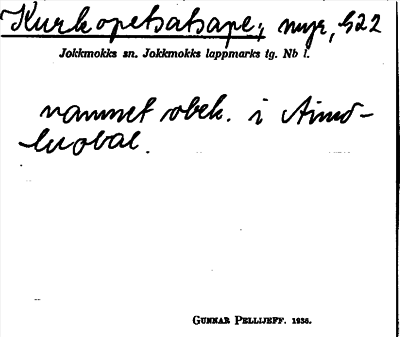 Kurkopetsatsape; myr, G22
Jokkmokks sn. Jokkmokks lappmarks tg. Nb l.
namnet obek. i
luobal.
GUNNAR PELLIJEFF. 1936.